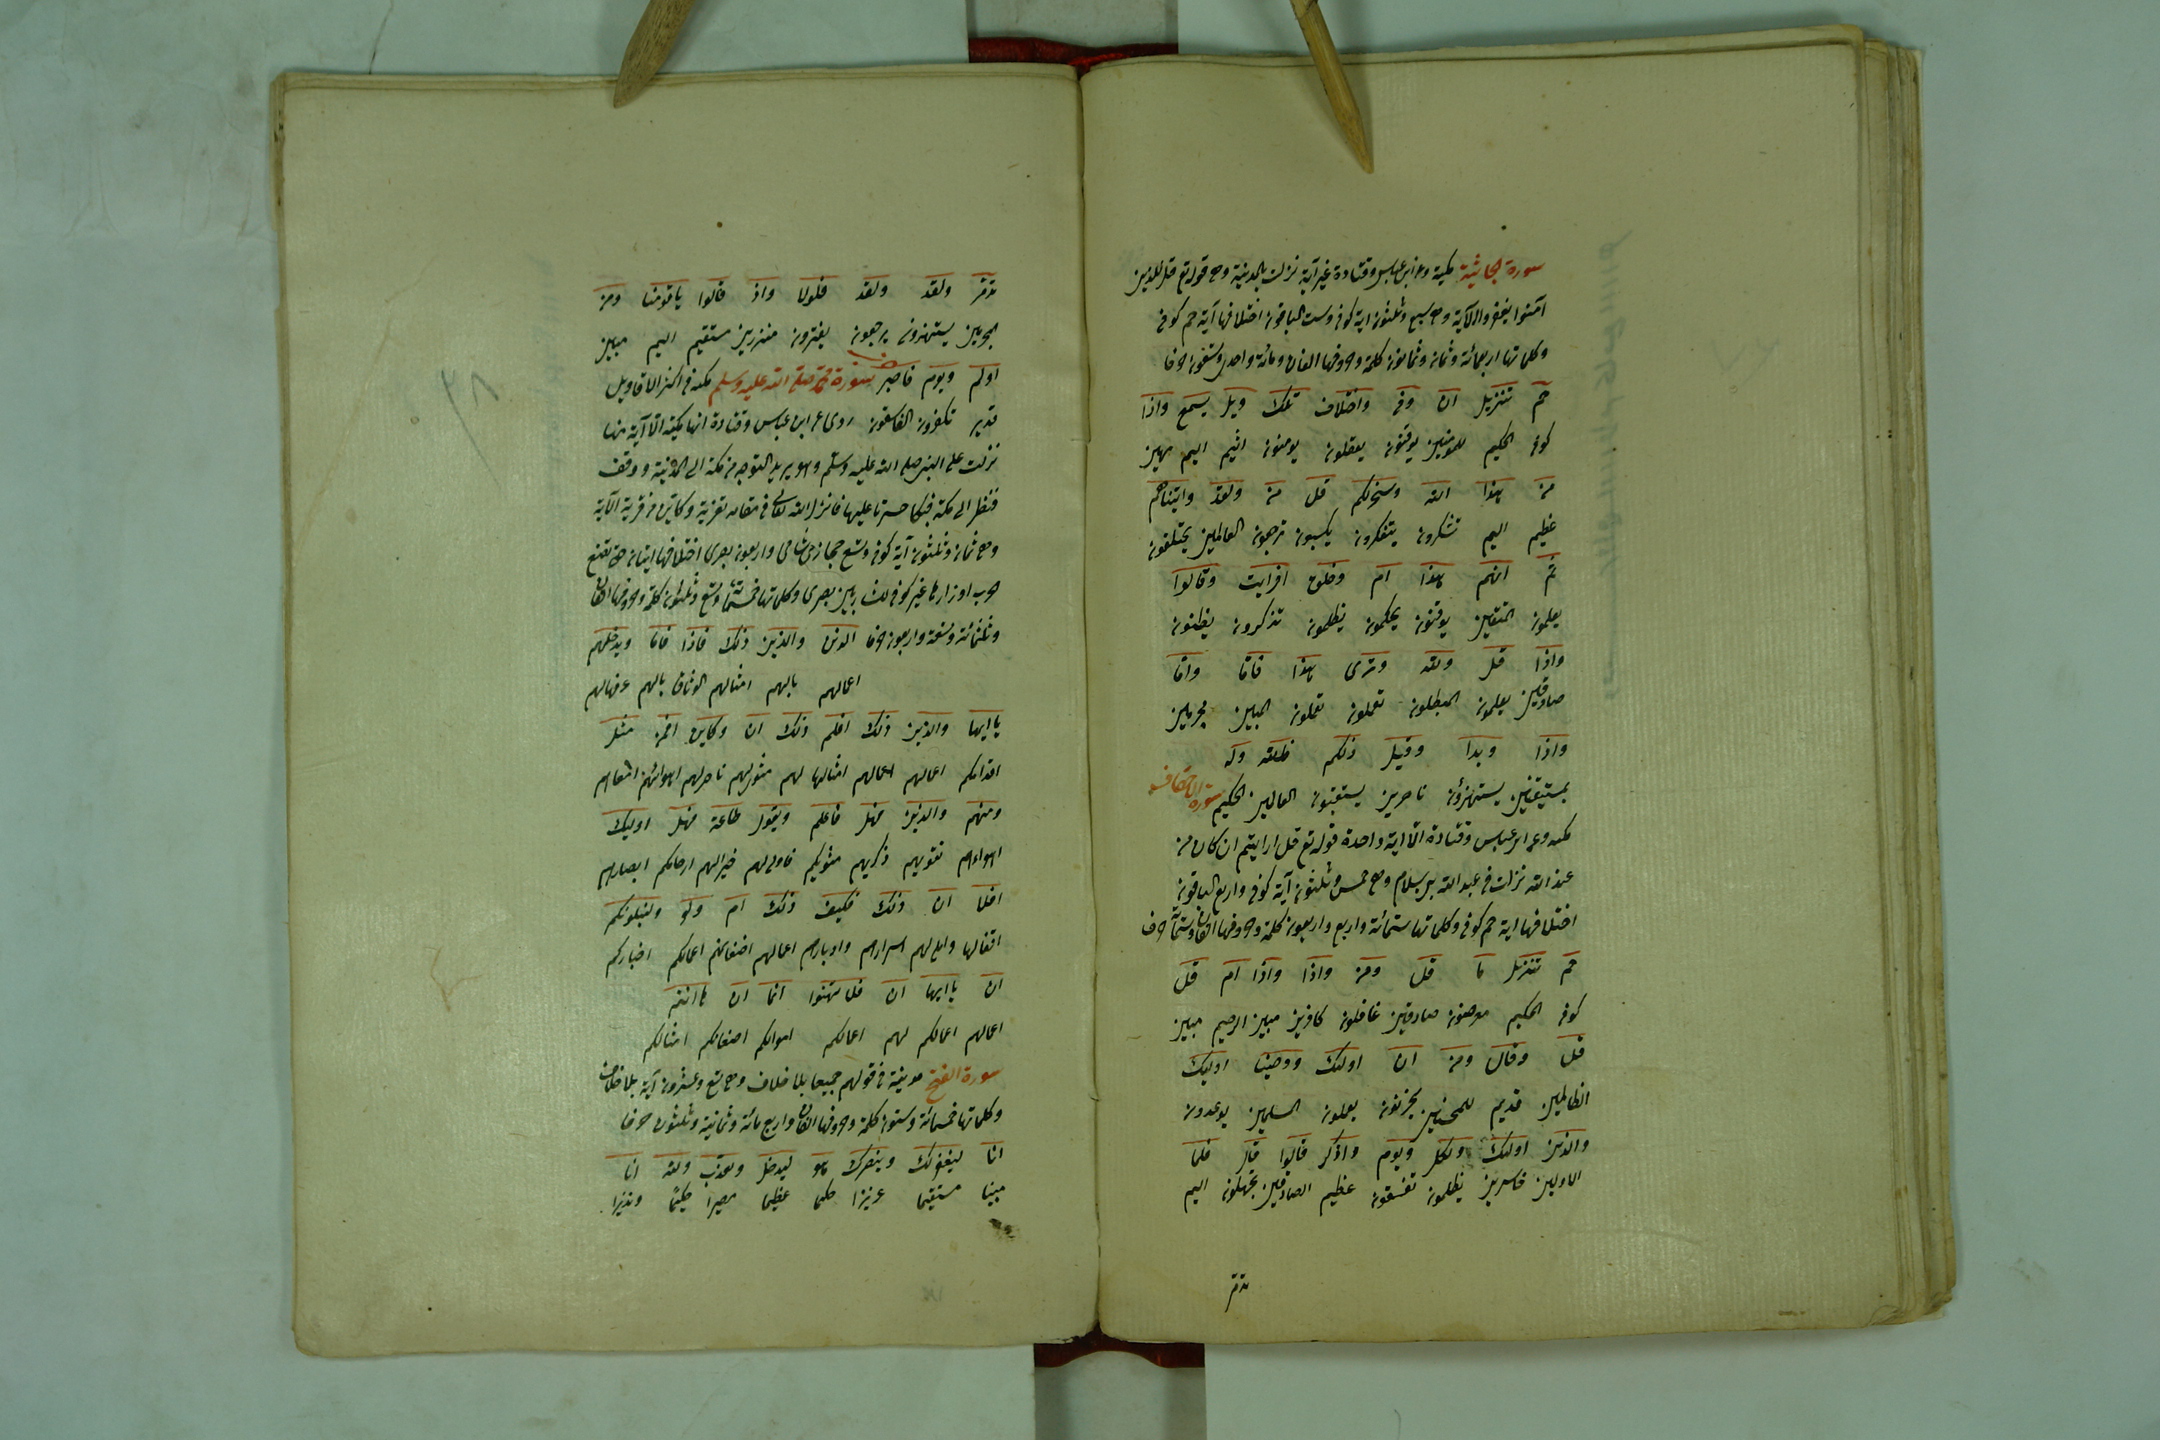 سورة الجاثية مكية وعن ابن عباس وقتادة غير آية نزلت بالمدينة وهى قوله تع قل للذين
آمنوا يغفروا الآية وهى سبع وثلثون اية كوفى وست الباقون اختلافها آية حم كوفى
وكلماتها اربعمائة وثمان وثمانون كلمة وحروفها الفان ومائة واحدى وتسعون حرفا
حم تنزيل ان وفى واختلاف تلك ويل يسمع واذا
كوفى الحكيم للمؤمنين يوقنون يعقلون يومنون اثيم اليم مهين
من هذا الله وسخرلكم قل من ولقد واتيناهم
عظيم اليم تشكرون يتفكرون يكسبون ترجعون العالمين يختلفون
ثم انهم هذا ام وخلق افرايت وقالوا
يعلمون المتقين يوقنون يحكمون يظلمون تذكرون يظنون
واذا قل ولله وترى هذا فاما واما
صادقين يعلمون المبطلون تعملون تعملون المبين مجرمين
واذا وبدا وقيل ذلكم فلله وله
بمستيقنين يستهزؤن ناصرين يستعتبون العالمين الحكيم سورة الاحقاف
مكية وعن ابن عباس وقتادة الا اية واحدة قوله تع قل ارايتم ان كان من
عند الله نزلت فى عبد الله بن سلام وهى خمس وثلثون آية كوفى واربع الباقون
اختلافها اية حم كوفى وكلماتها ستمائة واربع واربعون كلمة وحروفها الفان وستمائة حرف
حم تنزيل ما قل ومن واذا واذا ام قل
كوفى الحكيم معرضون صادقين غافلون كافرين مبين الرحيم مبين
قل وقال ومن ان اولئك ووصينا اوليك
الظالمين قديم للمحسنين يحزنون يعملون المسلمين يوعدون
والذين اولئك ولكل ويوم واذكر قالوا قال فلما
الاولين خاسرين يظلمون تفسقون عظيم الصادقين تجهلون اليم
تدمر
تدمر ولقد ولقد فلولا واذ قالوا ياقومنا ومن
المجرمين يستهزؤن يرجعون يفترون منذرين مستقيم اليم مبين
اولم ويوم فاصبر سورة محمد صلى الله عليه وسلم مكية فى اكثر الاقاويل
قدير تكفرون الفاسقون روى عن ابن عباس وقتادة انها مكية الا آية منها
نزلت على النبى صلى الله عليه وسلم وهو يريد التوجه من مكة الى المدينة ووقف
فنظر الى مكة فبكا حسرتا عليها فانزل الله تعالى فى مقامه تعزية وكاين من قرية الآية
وهى ثمان وثلثون آية كوفى وتسع حجازى شامى واربعون بصرى اختلافها ايتان حتى تضع
حرب اوزارها غير كوفى للشاربين بصرى وكلماتها خمسمائة وتسع وثلثون كلمة وحروفها الفان
وثلثمائة وتسعة واربعون حرفا الذين والذين ذلك فاذا فاما ويدخلهم
اعمالهم بالهم امثالهم الوثاق بالهم عرفها لهم
ياايها والذين ذلك افلم ذلك ان وكاين افمن مثل
اقدامكم اعمالهم اعمالهم امثالها لهم مثوى لهم ناصر لهم اهوائهم امعاءهم
ومنهم والذين فهل فاعلم ويقول طاعة فهل اوليك
اهواءهم تقويهم ذكريهم مثويكم فاولى لهم خيرالهم ارحامكم ابصارهم
افلا ان ذلك فكيف ذلك ام ولو ولنبلونكم
اقفالها واملى لهم اسرارهم وادبارهم اعمالهم اضغانهم اعمالكم اخباركم
ان ياايها ان فلا تهنوا انما ان هاانتم
اعمالهم اعمالكم لهم اعمالكم اموالكم اضغانكم امثالكم
سورة الفتح مدنية فى قولهم جميعا بلا خلاف وهى تسع وعشرون آية بلا خلاف
وكلماتها خمسمائة وستون كلمة وحروفها الفان واربع مائة وثمانية وثلثون حرفا
انا ليغفرلك وينصرك هو ليدخل ويعذب ولله انا
مبينا مستقيما عزيزا حكيما عظيما مصيرا حكيما ونذيرا